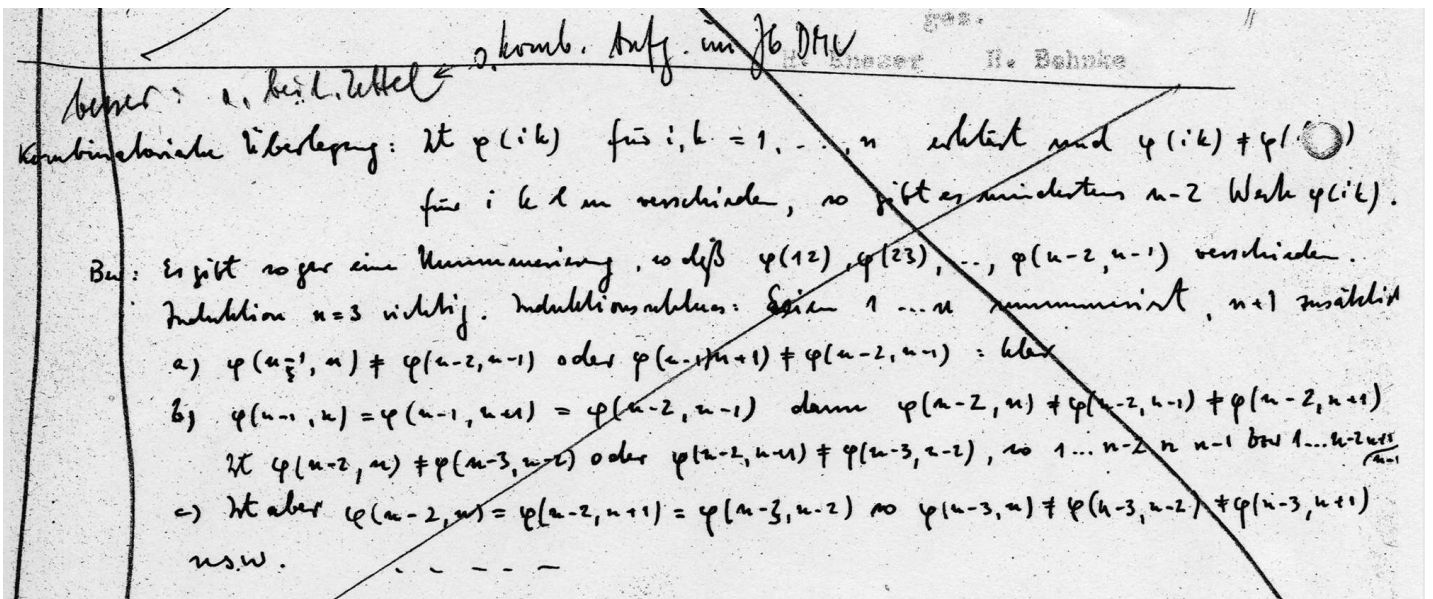 gez.
s. komb. Aufg. im Jb DMV
H. Kneser H. Behnke
besser: s. beil. Zettel ←
Kombinatorische Überlegung: Ist φ(ik) für i,k = 1, . . ., n erklärt und φ(ik) ≠ φ( )
für i k l m verschieden, so gibt es mindestens n-2 Werte φ(ik).
Bew: Es gibt sogar eine Nummerierung, so daß φ(12), φ(23), .., φ(n-2, n-1) verschieden.
Induktion n=3 richtig. Induktionsschluss: Seien 1 ... n nummeriert, n+1 zusätzlich
a) φ(n-1, n) ≠ φ(n-2, n-1) oder φ(n-1, n+1) ≠ φ(n-2, n-1) : klar
b) φ(n-1, n) = φ(n-1, n+1) = φ(n-2, n-1) dann φ(n-2, n) ≠ φ(n-2, n-1) ≠ φ(n-2, n+1)
Ist φ(n-2, n) ≠ φ(n-3, n-2) oder φ(n-2, n+1) ≠ φ(n-3, n-2), so 1 ... n-2 n n-1 bzw 1 ... n-2 n+1 n-1
c) Ist aber φ(n-2, n) = φ(n-2, n+1) = φ(n-3, n-2) so φ(n-3, n) ≠ φ(n-3, n-2) ≠ φ(n-3, n+1)
usw. . . - - -